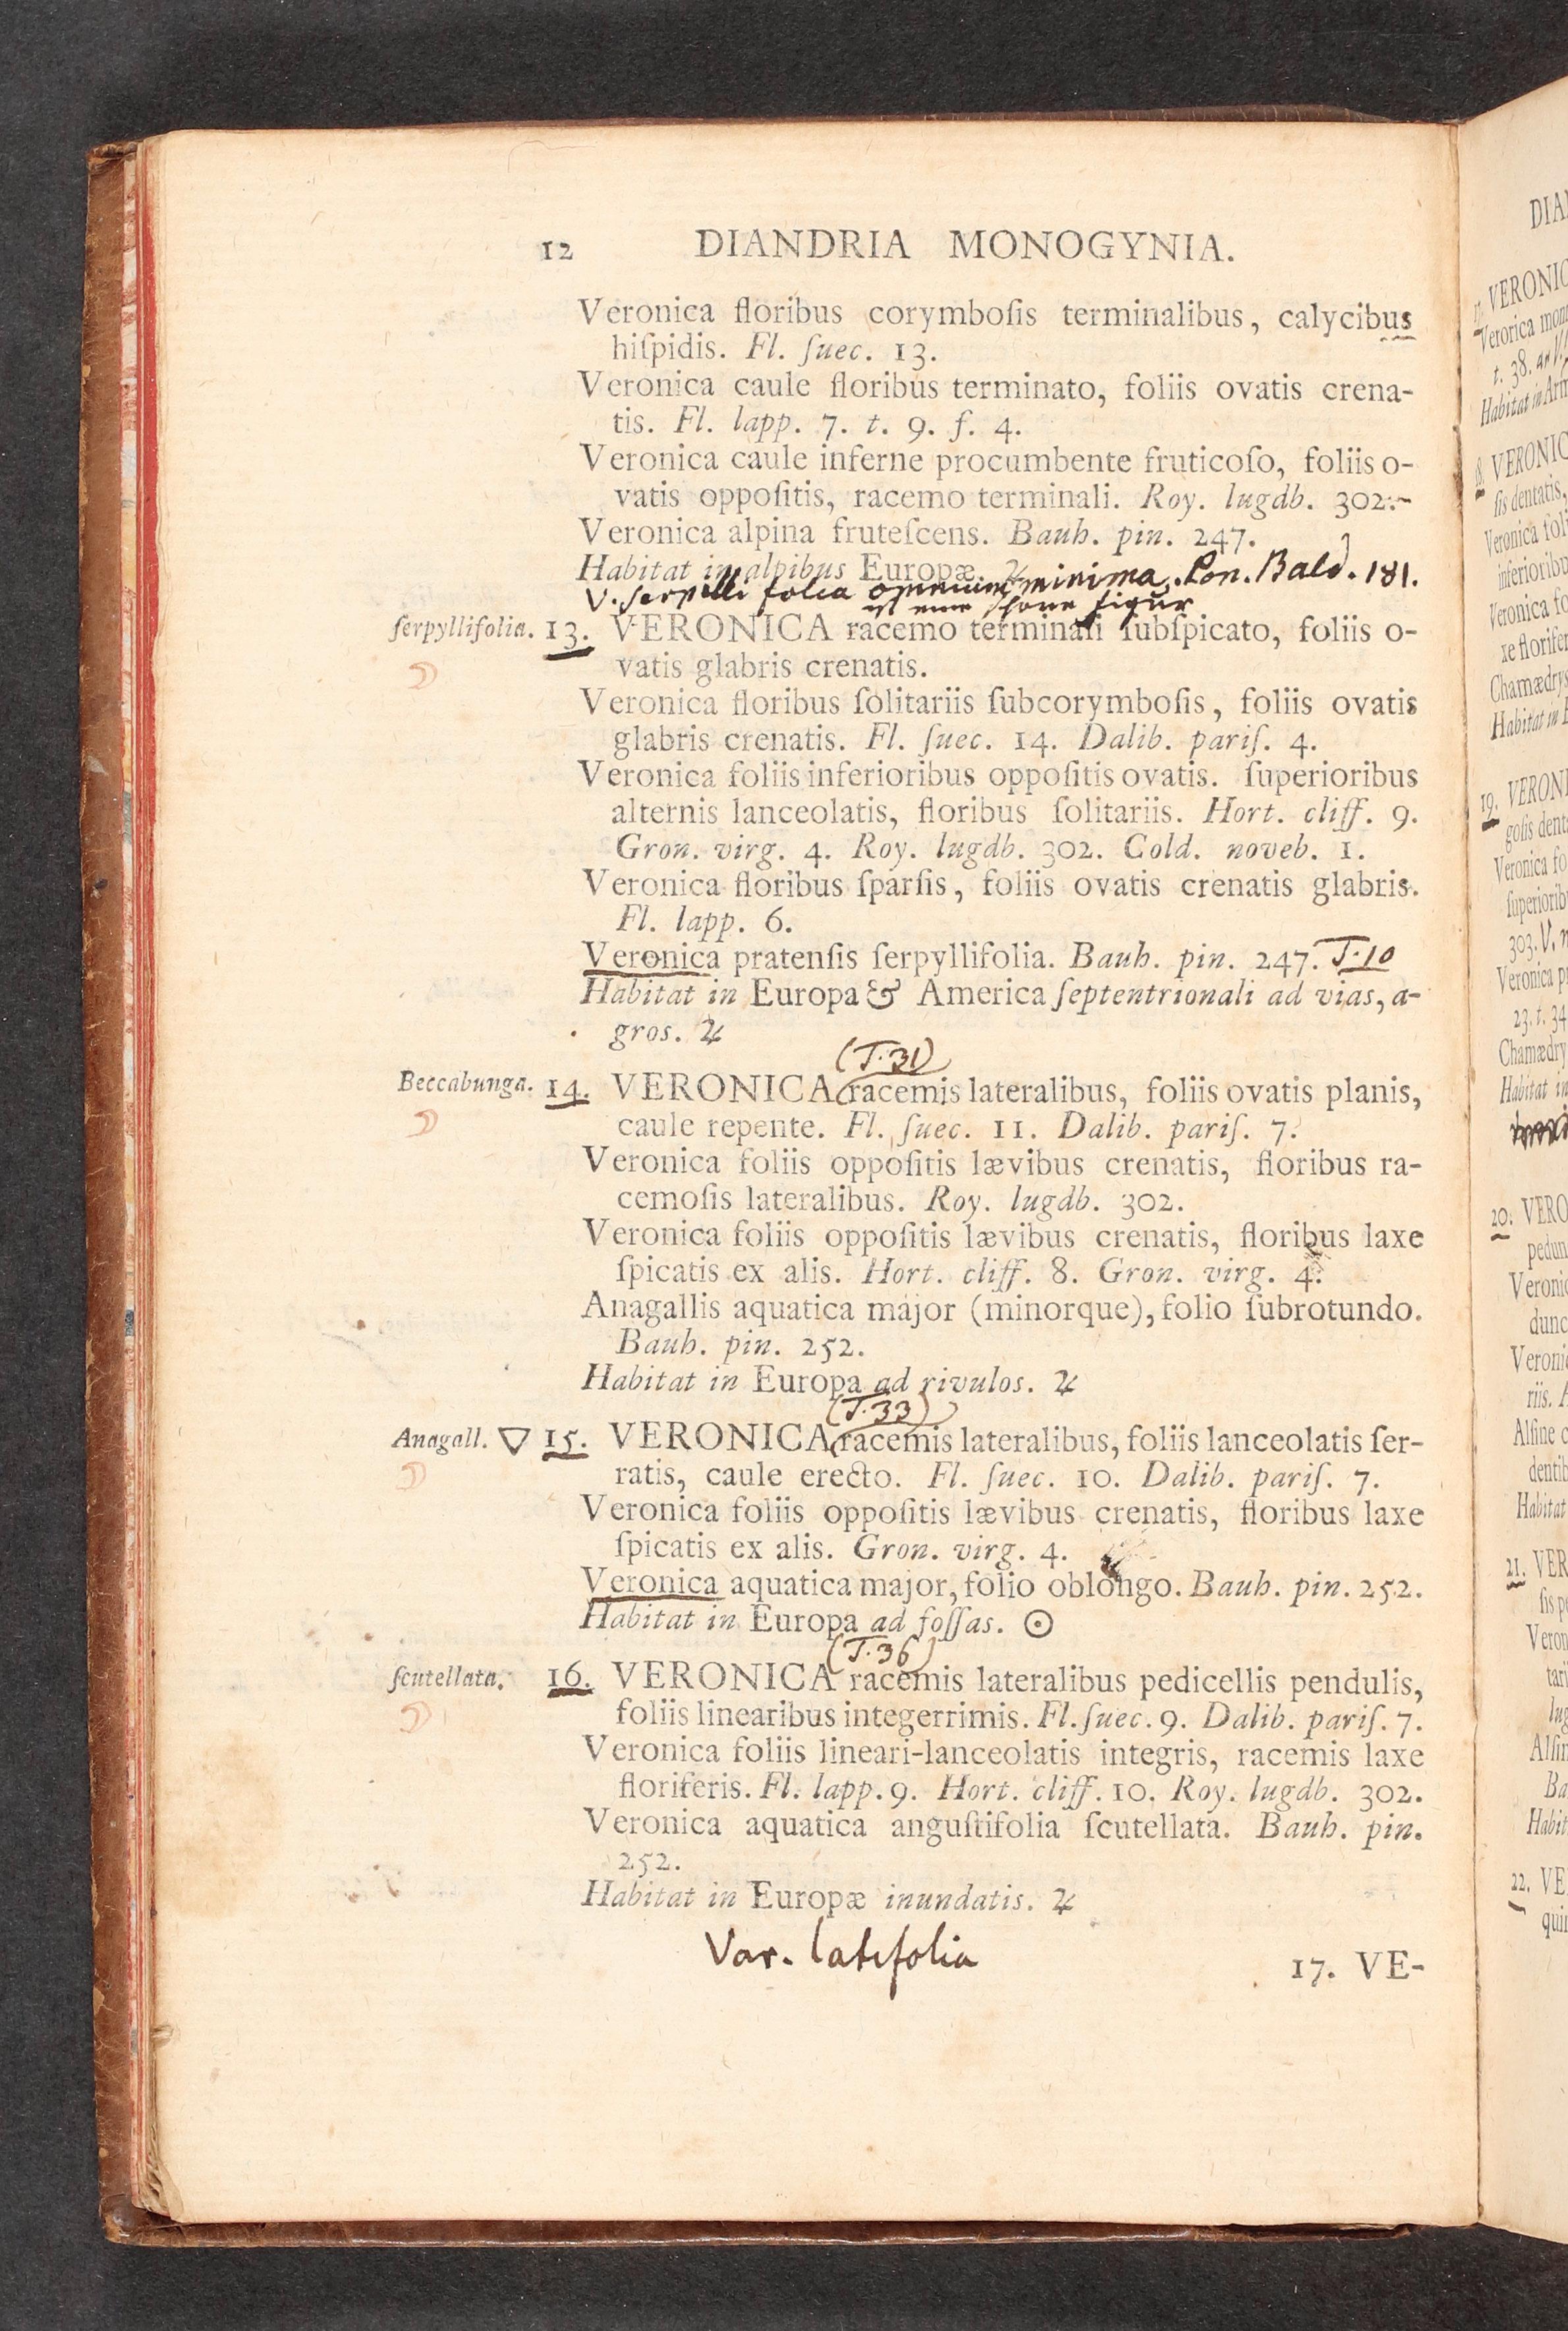 12 DIANDRIA MONOGYNIA.
Veronica floribus corymboſis terminalibus, calycibus
hiſpidis. Fl. ſuec. 13.
Veronica caule floribus terminato, foliis ovatis crena-
tis. Fl. lapp. 7. t. 9. f. 4.
Veronica caule inferne procumbente fruticoſo, foliis o-
vatis oppoſitis, racemo terminali. Roy. lugdb. 302.
Veronica alpina fruteſcens. Bauh. pin. 247.
Habitat in alpibus Europæ. ♃
V. serpilli folia omnium minima. Pon. Bald. 181.
ist eine schöne figur
ſerpyllifolia. 13. VERONICA racemo terminali ſubſpicato, foliis o-
vatis glabris crenatis.
Veronica floribus ſolitariis ſubcorymboſis, foliis ovatis
glabris crenatis. Fl. ſuec. 14. Dalib. pariſ. 4.
Veronica foliis inferioribus oppoſitis ovatis. ſuperioribus
alternis lanceolatis, floribus ſolitariis. Hort. cliff. 9.
Gron. virg. 4. Roy. lugdb. 302. Cold. noveb. 1.
Veronica floribus ſparſis, foliis ovatis crenatis glabris.
Fl. lapp. 6.
Veronica pratenſis ſerpyllifolia. Bauh. pin. 247. T.10
Habitat in Europa & America ſeptentrionali ad vias, a-
gros. ♃
(T.31)
Beccabunga. 14. VERONICA racemis lateralibus, foliis ovatis planis,
caule repente. Fl. ſuec. 11. Dalib. pariſ. 7.
Veronica foliis oppoſitis lævibus crenatis, floribus ra-
cemoſis lateralibus. Roy. lugdb. 302.
Veronica foliis oppoſitis lævibus crenatis, floribus laxe
ſpicatis ex alis. Hort. cliff. 8. Gron. virg. 4.
Anagallis aquatica major (minorque), folio ſubrotundo.
Bauh. pin. 252.
Habitat in Europa ad rivulos. ♃
(T.33)
Anagall. ▽ 15. VERONICA racemis lateralibus, foliis lanceolatis ſer-
ratis, caule erecto. Fl. ſuec. 10. Dalib. pariſ. 7.
Veronica foliis oppoſitis lævibus crenatis, floribus laxe
ſpicatis ex alis. Gron. virg. 4.
Veronica aquatica major, folio oblongo. Bauh. pin. 252.
Habitat in Europa ad foſſas. ☉
(T.36)
ſcutellata. 16. VERONICA racemis lateralibus pedicellis pendulis,
foliis linearibus integerrimis. Fl. ſuec. 9. Dalib. pariſ. 7.
Veronica foliis lineari-lanceolatis integris, racemis laxe
floriferis. Fl. lapp. 9. Hort. cliff. 10. Roy. lugdb. 302.
Veronica aquatica anguſtifolia ſcutellata. Bauh. pin.
252.
Habitat in Europæ inundatis. ♃
Var. latifolia
17. VE-